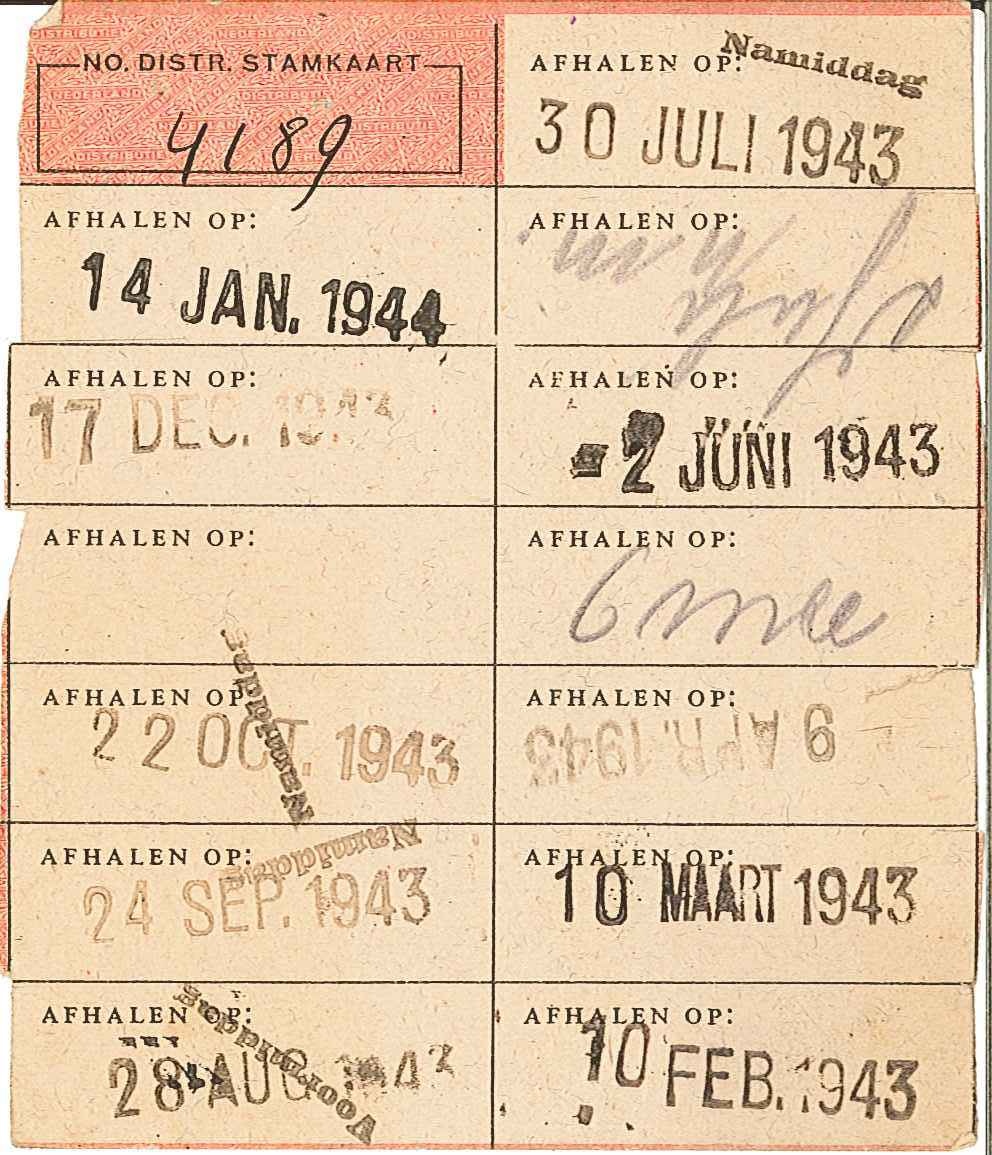 NO. DISTR. STAMKAART
4189
AFHALEN OP:
Namiddag
30 JULI 1943
AFHALEN OP:
14 JAN. 1944
AFHALEN OP:
AFHALEN OP:
17 DEC. 1943
AFHALEN OP:
-2 JUNI 1943
AFHALEN OP:
AFHALEN OP:
AFHALEN OP:
Namiddag
22 OCT. 1943
AFHALEN OP:
9 APR. 1943
AFHALEN OP:
Namiddag
24 SEP. 1943
AFHALEN OP:
10 MAART 1943
AFHALEN OP:
Voormiddag
28 AUG 1943
AFHALEN OP:
10 FEB. 1943